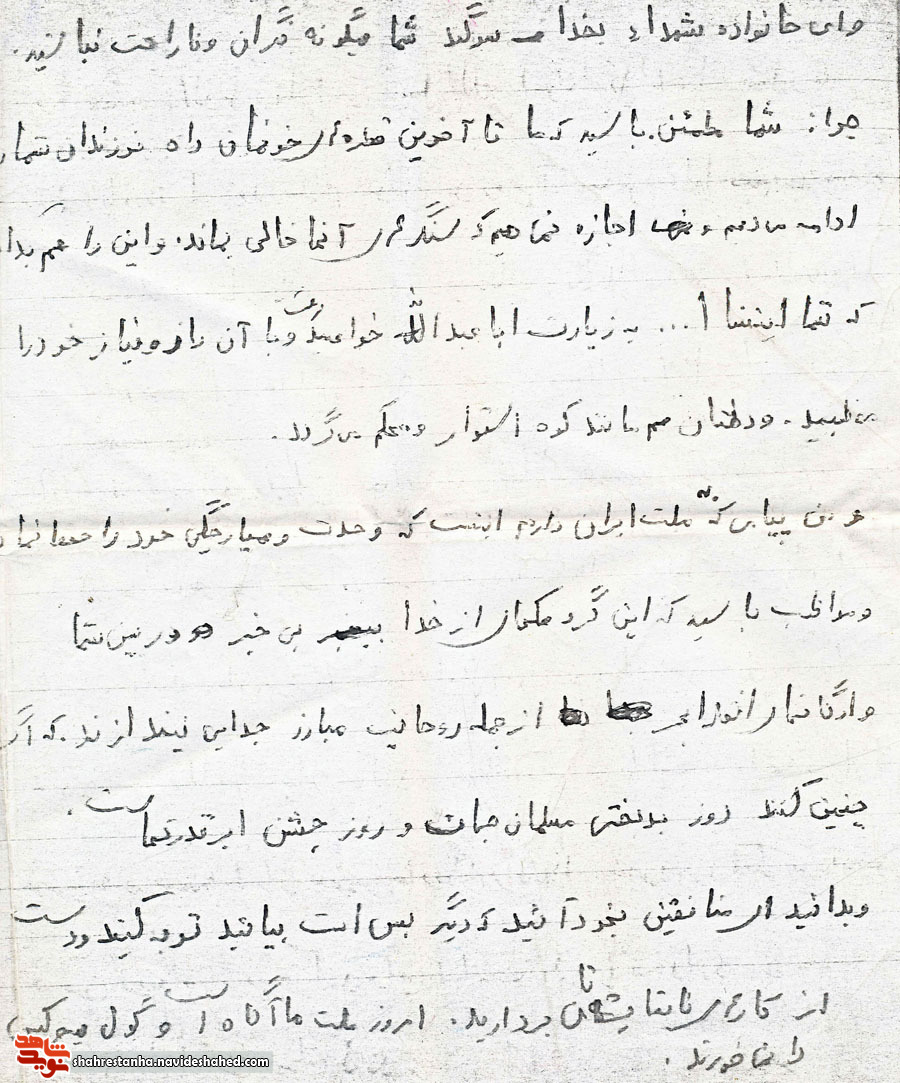 وای خانواده شهداء بخدا سوگند شما هیگونه نگران و ناراحت نباشید.
چرا: شما مطمئن باشید که ما تا آخرین قطره‌ای خونمان راه فرزندان شما
ادامه می‌دهیم و اجازه نمی‌دهیم که سنگرهای آنها خالی بماند. و این را هم بدا
که شما انشا ا... به زیارت ابا عبدالله خواهید رفت و با آن راز و نیاز خود را
می‌طلبید. و دلتان هم مانند کوه استوار و محکم می‌گردد.
و من پیامی که به ملت ایران دارم اینست که وحدت و یکپارچگی خود را حفظ نما
و مواظب باشید که این گروهکهای از خدا بی خبر در بین شما
و ارگانهای از جمله روحانیت مبارز جدایی نیندازند. که اگر
چنین کنند روز بدبختی مسلمان جهان و روز جشن ابرقدرتهاست.
و بدانید ای منافقین بخود آئید که دیگر بس است بیائید توبه کنید و دست
از کارهای ناشایشتتان بردارید. امروز ملت ما آگاه است و گول
را نمی‌خورند.
شاهد
نوید
shahrestanha.navideshahed.com